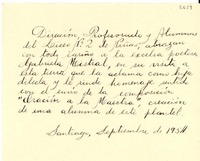 Dirección, Profesorado y Alumnas
del Liceo Nº 2 de Niñas, abrazan
con todo cariño a la excelsa poetisa
Gabriela Mistral, en su visita a
esta tierra que la aclama como hija
dilecta y le rinde homenaje unido
con el envío de la composición
"Oración a la Maestra", creación
de una alumna de este plantel.
Santiago, Septiembre de 1954